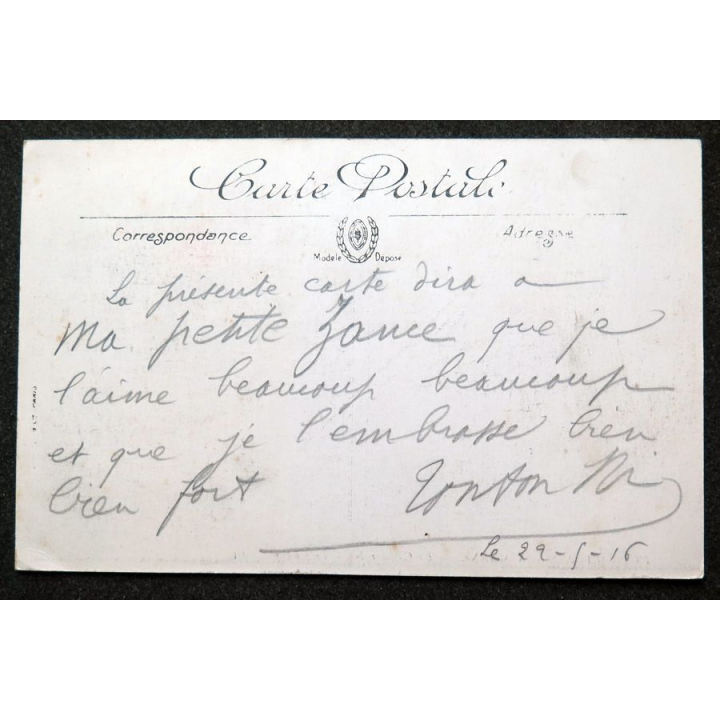 Carte Postale
Correspondance
Adresse
Modèle Déposé
La présente carte dira a
Ma petite Zance que je
l'aime beaucoup beaucoup
et que je l'embrasse bien
bien fort
Tonton Ni
Le 29-5-16